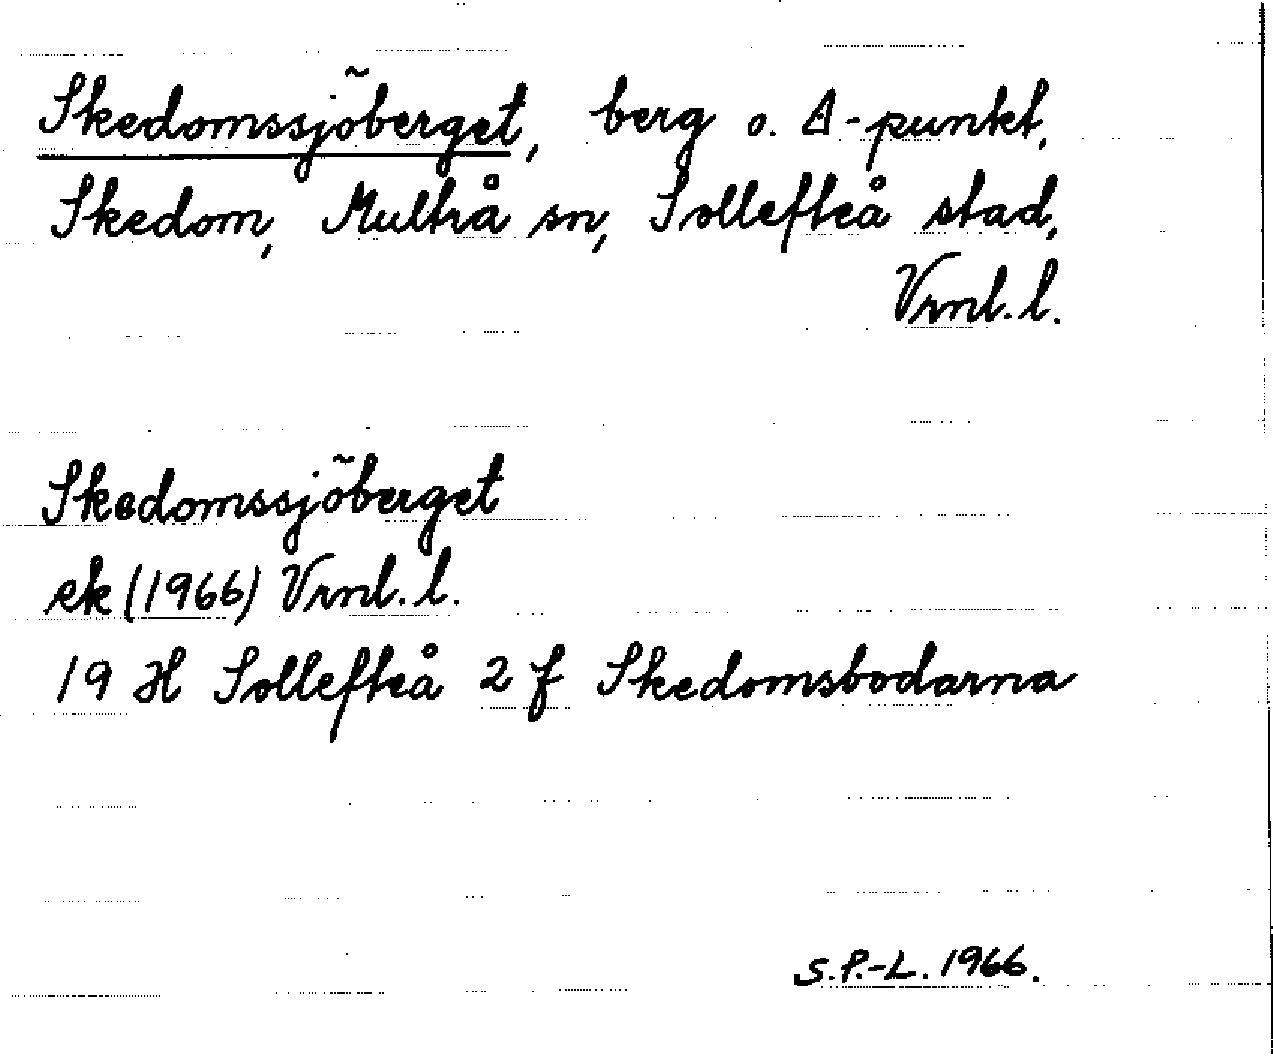 Skedomssjöberget, berg o. Δ-punkt,
Skedom, Multrå sn, Sollefteå stad,
Vrnl. l.
Skedomssjöberget
ek (1966) Vrnl. l.
19 H Sollefteå 2 f Skedomsbodarna
S.P.-L. 1966.